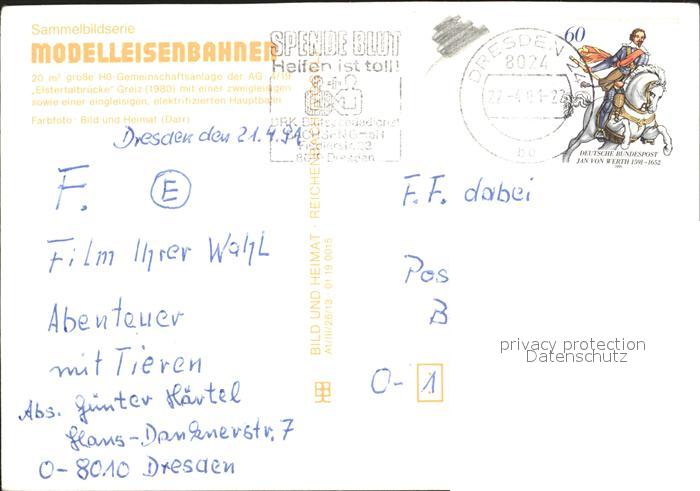 Sammelbildserie
MODELLEISENBAHNEN
20 m² große H0-Gemeinschaftsanlage der AG 4/19
„Elstertalbrücke" Greiz (1980) mit einer zweigleisigen
sowie einer eingleisigen, elektrifizierten Hauptbahn
Farbfoto: Bild und Heimat (Darr)
SPENDE BLUT
Helfen ist toll!
DRK-Blutspendedienst
8019 Dresden
DRESDEN
8024
22-4.91-22
bg
60
DEUTSCHE BUNDESPOST
JAN VON WERTH 1591-1652
1991
Dresden den 21.4.91
F. E
Film Ihrer Wahl
Abenteuer
mit Tieren
Abs. Günter Härtel
Hans-Dankner­str. 7
O-8010 Dresden
BILD UND HEIMAT · REICHENBACH
A1/III/26/13 01 19 0015
F.F. dabei
Pos
B
O-1
privacy protection
Datenschutz